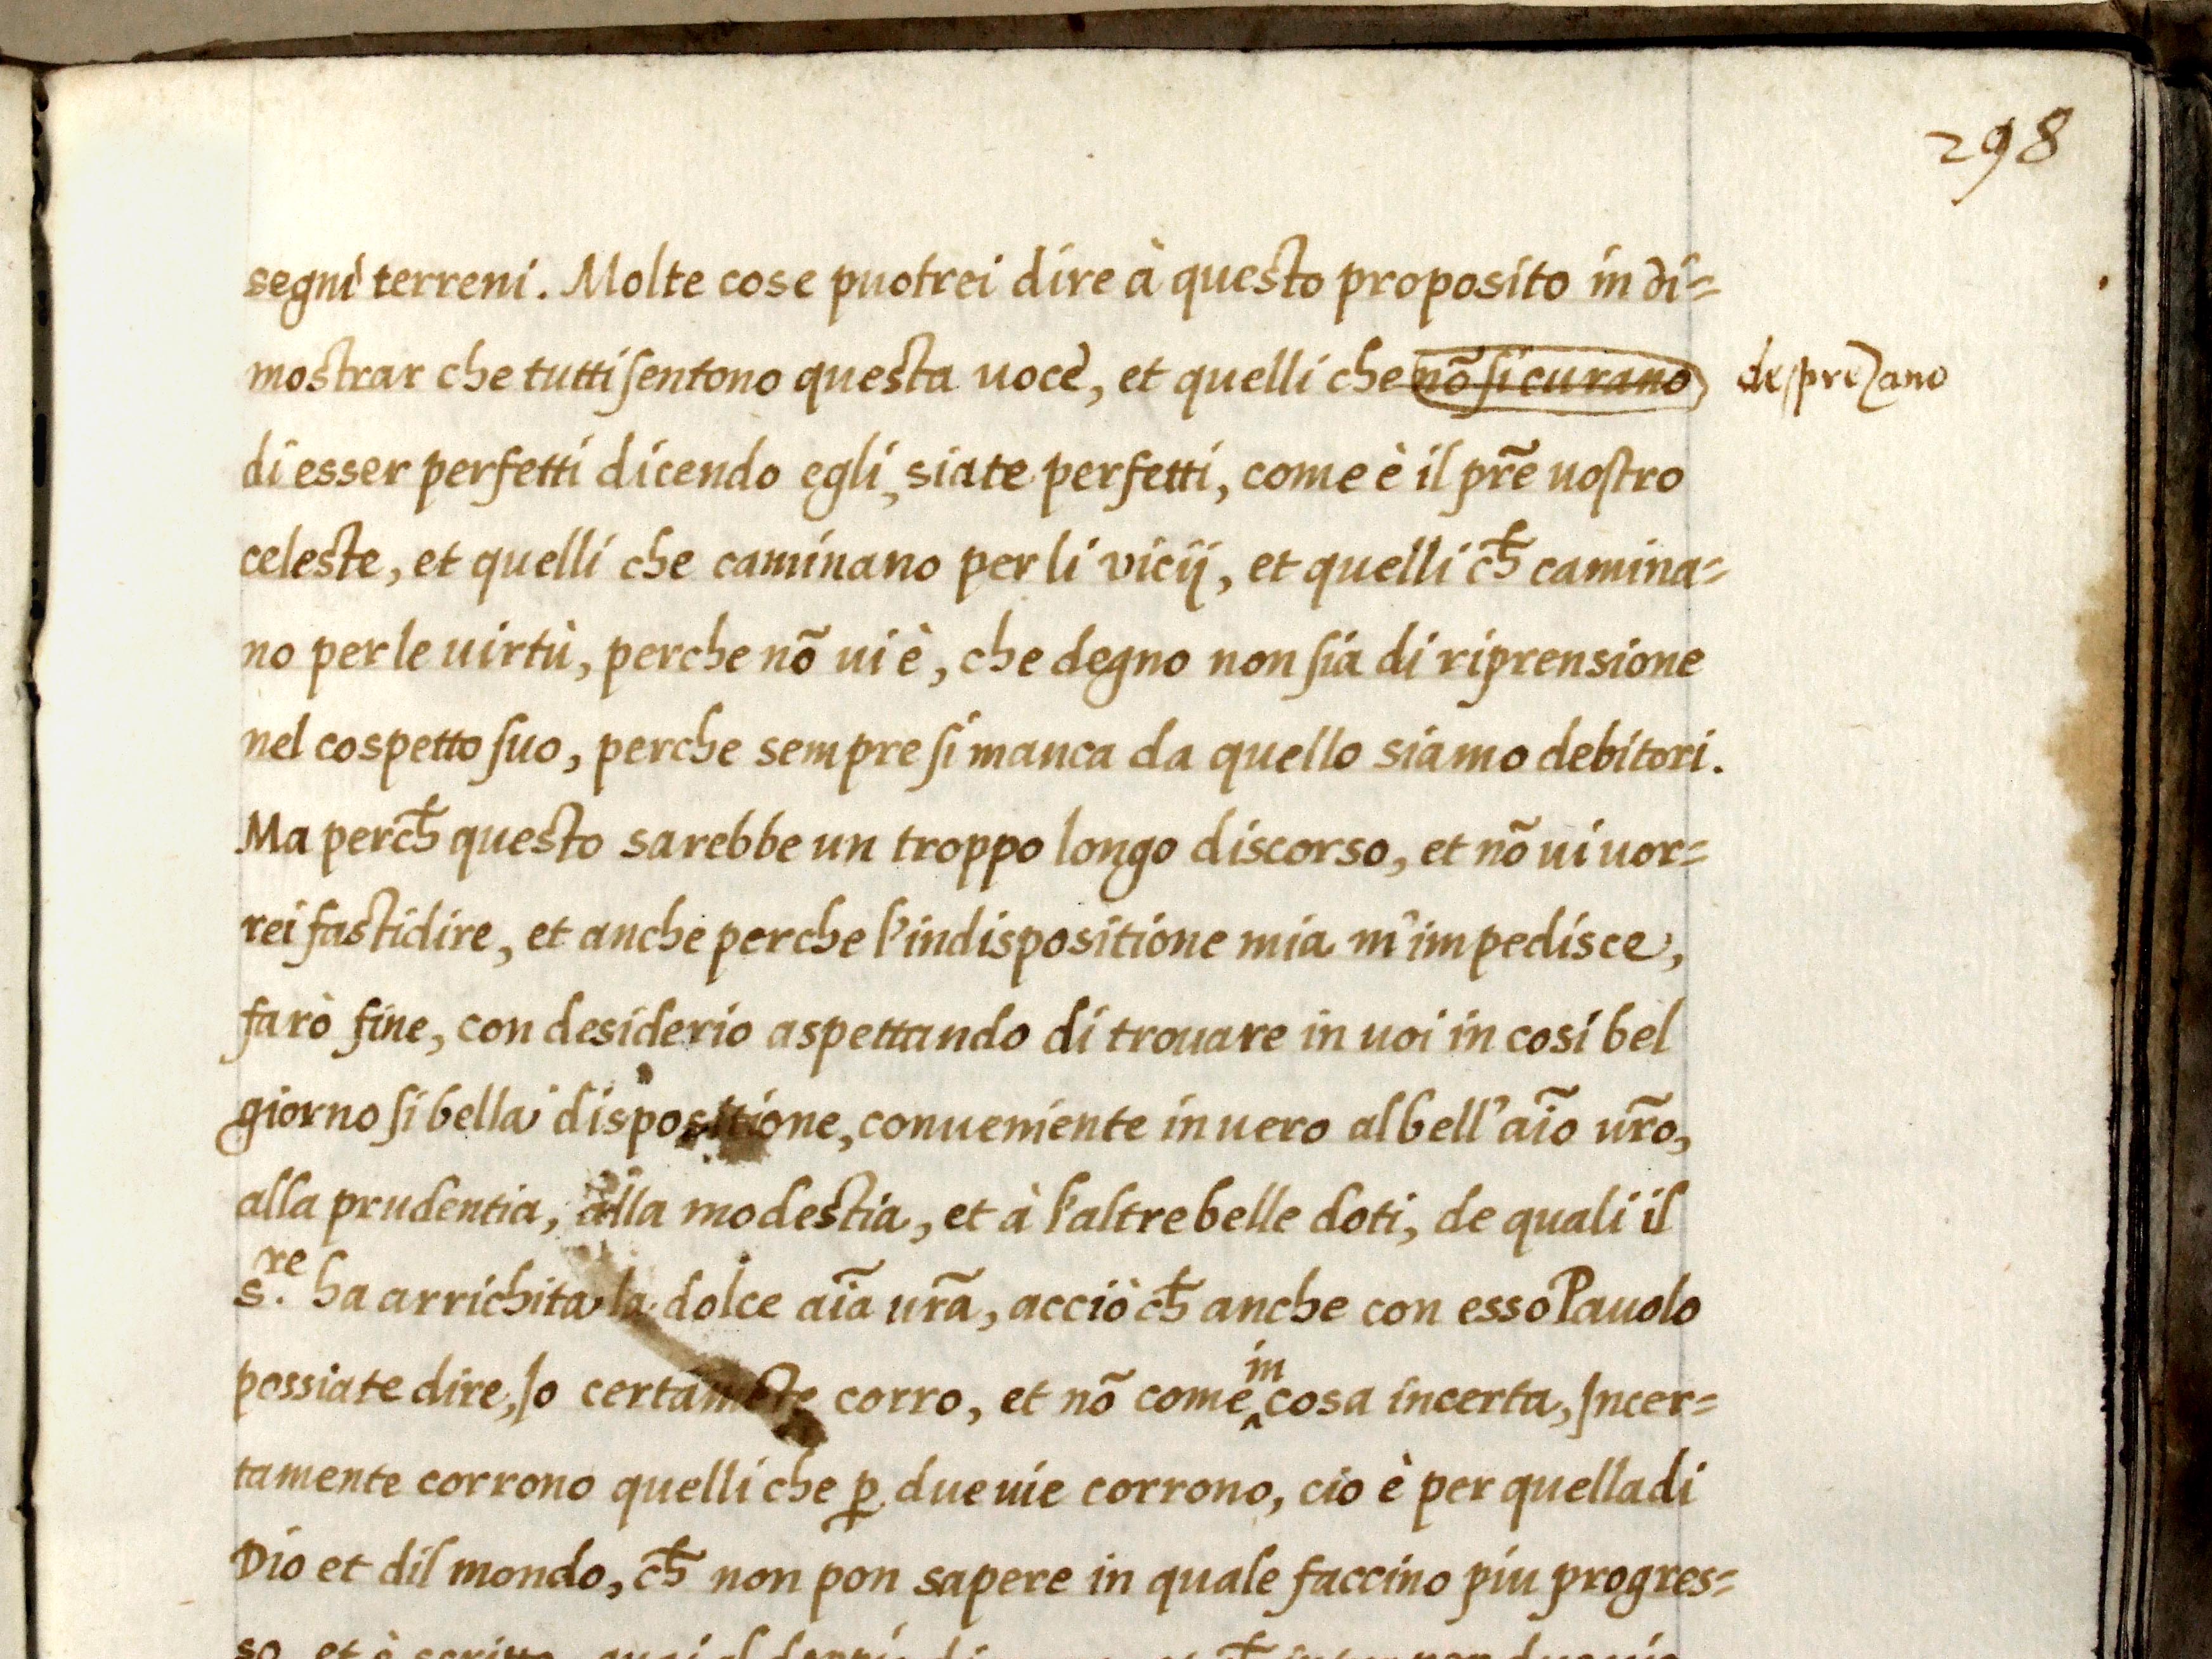 298
segni terreni. Molte cose puotrei dire à questo proposito in di=
mostrar che tutti sentono questa uoce, et quelli che nõ si curano desprezano
di esser perfetti dicendo egli, siate perfetti, come è il pr̃e uostro
celeste, et quelli che caminano per li vicij, et quelli ch̃ camina=
no per le uirtù, perche nõ ui è, che degno non sia di riprensione
nel cospetto suo, perche sempre si manca da quello siamo debitori.
Ma perch̃ questo sarebbe un troppo longo discorso, et nõ ui uor=
rei fastidire, et anche perche l'indispositione mia m'impedisce,
farò fine, con desiderio aspettando di trouare in uoi in cosi bel
giorno si bella dispositione, conueniente in uero al bell'aĩo ur̃o,
alla prudentia, alla modestia, et à l'altre belle doti, de quali il
s.re ha arrichita la dolce aĩa ur̃a, acciò ch̃ anche con esso Pauolo
possiate dire, Io certamẽte corro, et nõ come in cosa incerta, Incer=
tamente corrono quelli che ꝑ due uie corrono, cio è per quella di
Dio et dil mondo, ch̃ non pon sapere in quale faccino piu progres=
so, et è scritto, guai al